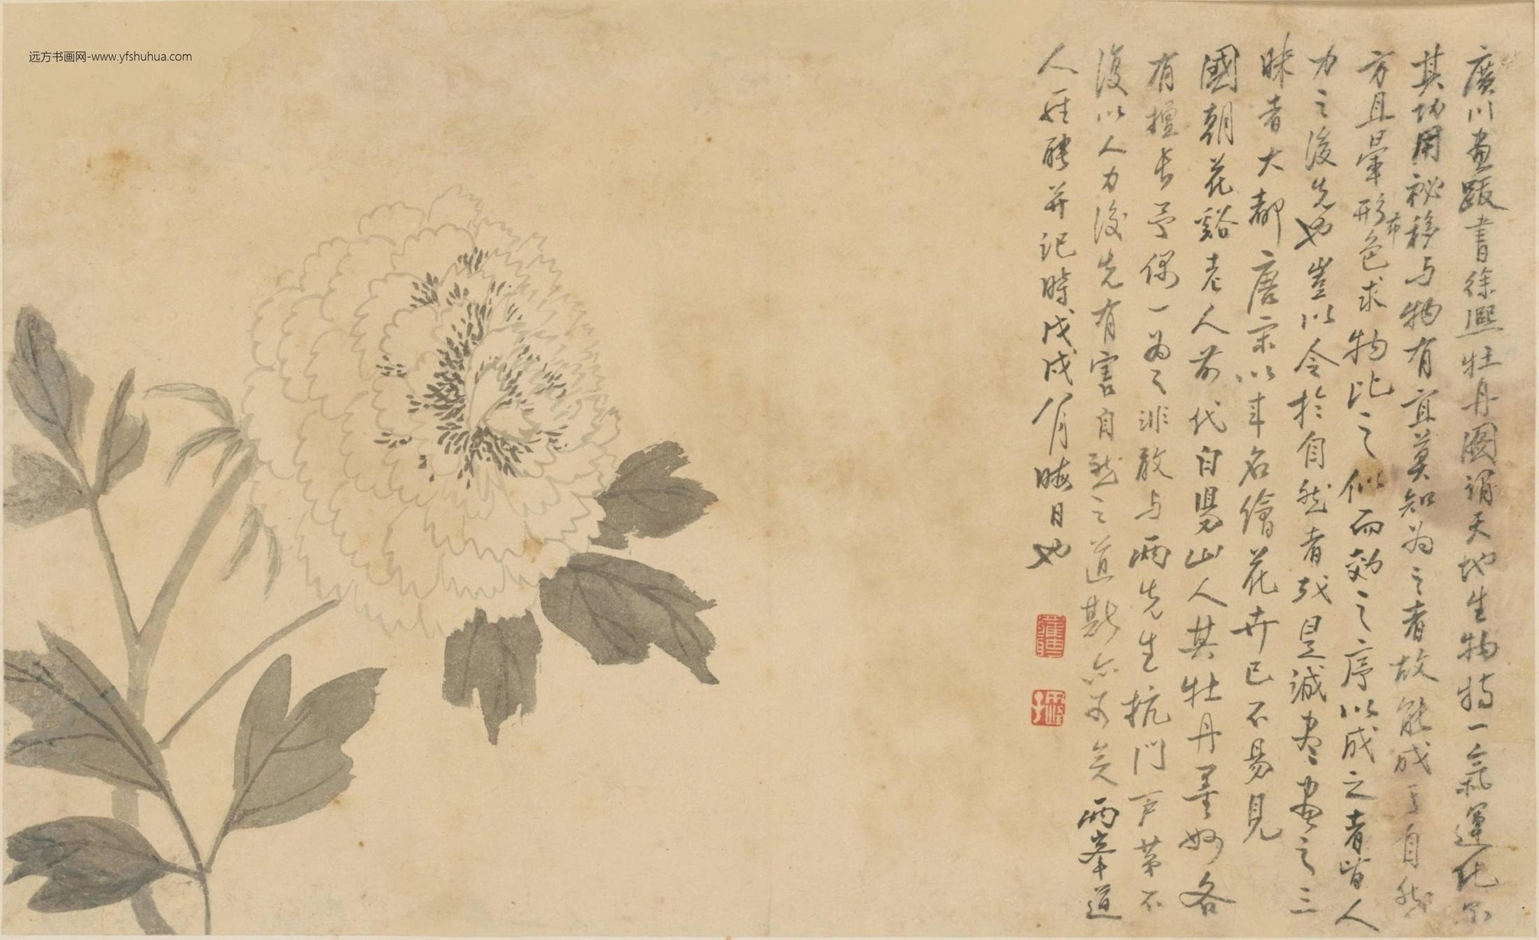 远方书画网-www.yfshuhua.com
廣川畫跋書徐熙牡丹圖謂天地生物特一氣運化爾
其功用祕移与物有宜莫知為之者故能成于自然
方且暈形布色求物比之似而效之序以成之者皆人
力之後先也豈以合於自然者哉是誠盡畫之三
昧者大都唐宋以來名繪花卉已不易見
國朝花谿老人前代白陽山人其牡丹墨妙各
有擅長予偶一為之非敢与兩先生抗門戶第不
復以人力後先有害自然之道斯亦可矣兩峯道
人羅聘并記時戊戌八月晦日也